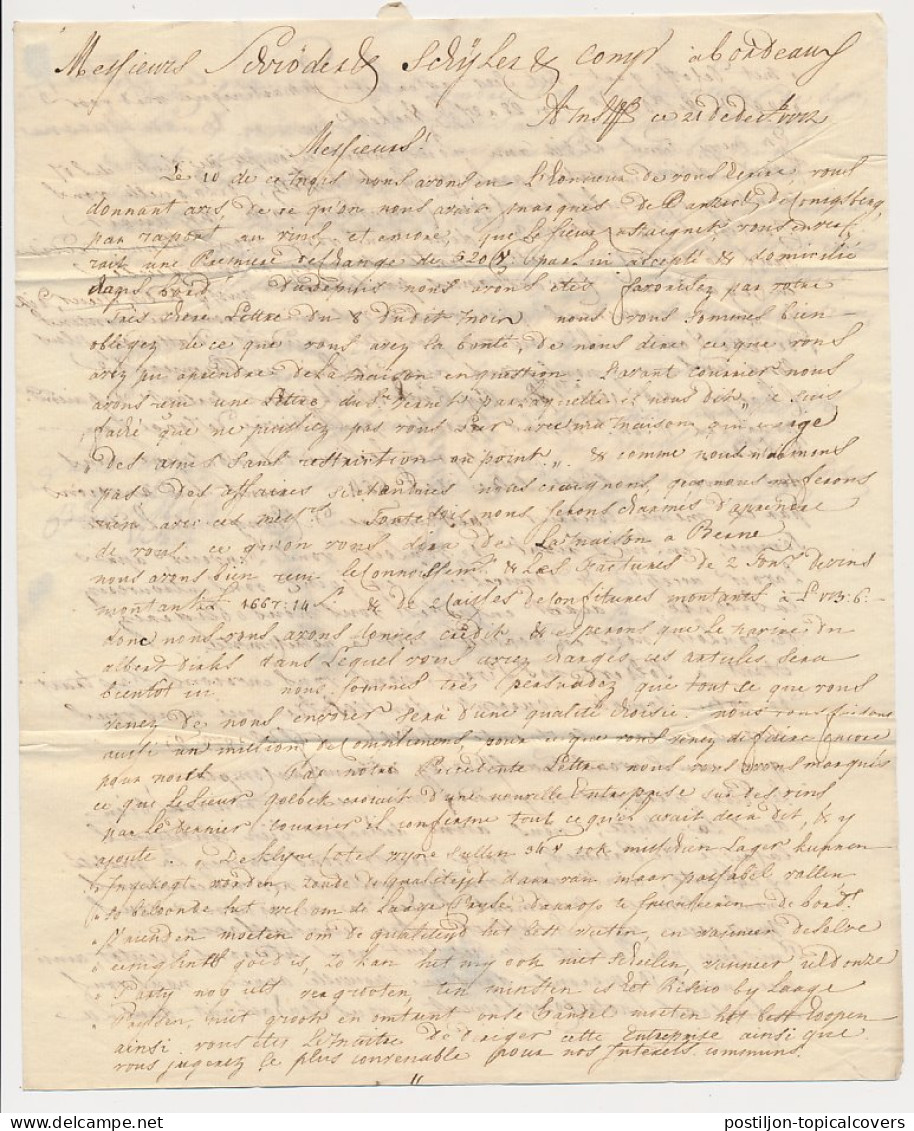 Messieurs Schröder & Schÿler & Comp. a bordeaux
Amst ce 21 de dec
Messieurs!
Le 10 de ce mois nous avons eu L'honneur de vous ecrire, vous
donnant avis, de ce qu'on nous avais marqués de Danzic & de Conigsberg,
par raport au vins, et encore, que Le Sieur vous enver
roit une Premiere de change de 520 accepté & domicilié
chez bord dudepuis nous avons etes favorisez par votre
Tres chere Lettre du 8 dudit mois nous vous sommes bien
obligez de ce que vous avez la bonté, de nous dire ce que vous
avez pu aprendre de La maison en question. L'avant courrier nous
avons recu une Lettre du Sr. par laquelle il nous dit, " je suis
faché que ne puissiez pas vous avec ma maison, qui exige
des amis sans restriction au point " & comme nous n'aimons
pas des affaires si etendues nous craignons, que nous ne ferons
rien avec ces messrs. Toutefois nous serons charmés d'aprendre
de vous, ce qu'on vous dira de La maison a Berne
nous avons bien recu le connoissemt. & Les Factures de 2 Tonx. de vins
montant L 1667:14 & de 2 caisses de confitures montant à L 173:6.-
donc nous vous avons donnés credit & esperons que Le navire du
albert dirks dans Lequel vous aviez chargés ces articles sera
bientot ici nous sommes tres persuadez que tout ce que vous
venez de nous envoyer sera d'une qualité choisie. nous vous faisons
aussi un million de complimens, pour ce que vous venez de faire encore
pour nous Par nôtre Precedente Lettre nous vous avons marqués
ce que Le Sieur golbek ecrivit d'une nouvelle Entreprise sur des vins
par Le dernier courrier il conferme tout ce qu'il avait deja dit, & y
ajoute. " De klyne rote wyne sullen 34 ook misschien Lager kunnen
" Ingekogt worden, zoude de qualiteyd daar van maar passabel vallen
" zo beloonde het wel om de Laage Pryse daarop te De bords.
" Vrienden moeten om de qualiteyd het best weeten, en wanneer deselve
" goed is, zo kan het my ook niet scheelen, wanneer UEd onze
" Party nog iets vergrooten, ten minsten is het Risico by Laage
" Prysen, niet groot en omtrent onse Handel moeten het best hoopen
ainsi vous etes Le maitre de diriger cette Entreprise ainsi que
vous jugerez Le plus convenable pour nos Interets communs.
postiljon-topicalcovers